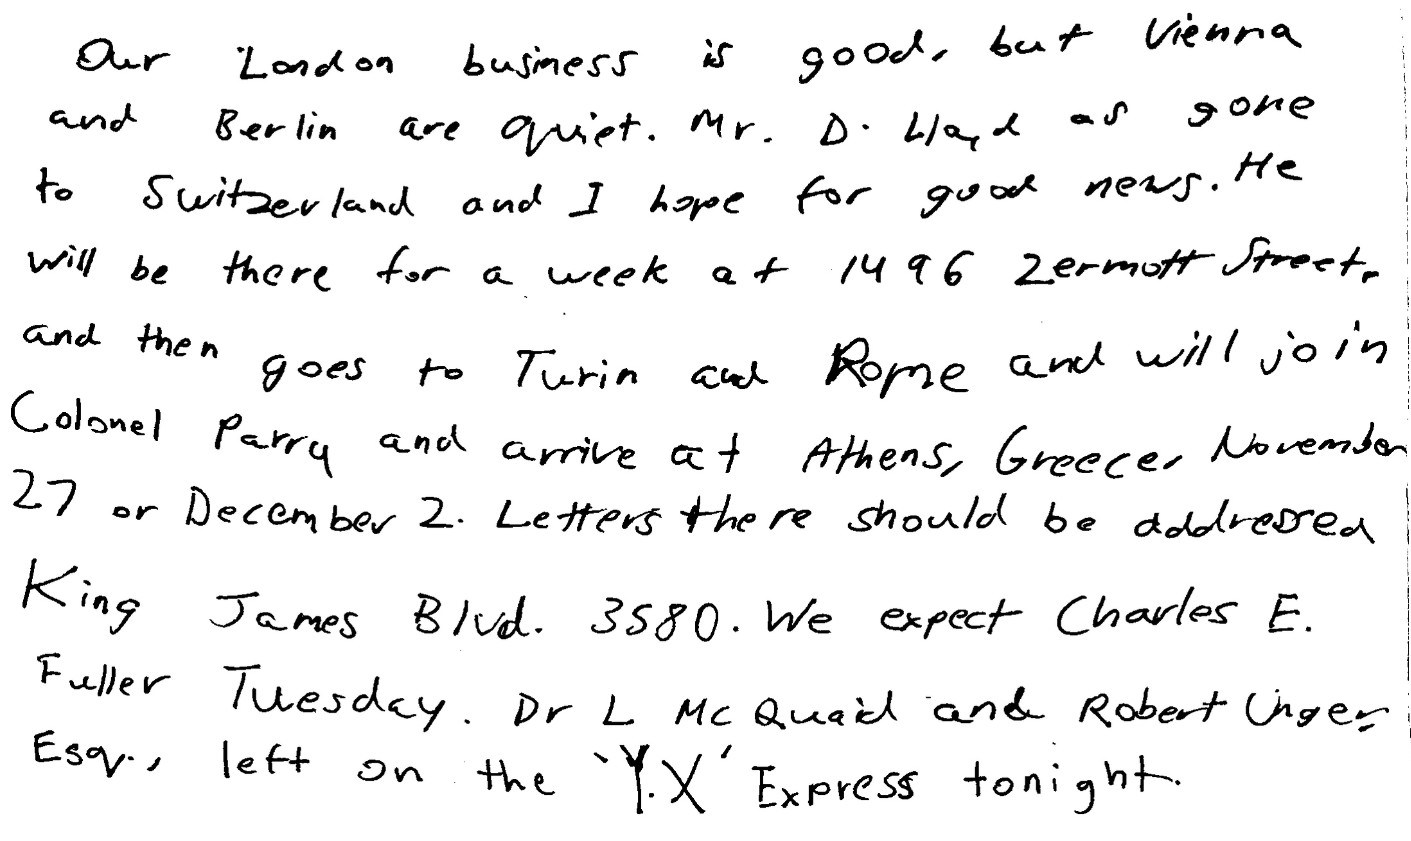 Our London business is good, but Vienna
and Berlin are quiet. Mr. D. Lloyd as gone
to Switzerland and I hope for good news. He
will be there for a week at 1496 Zermott Street,
and then goes to Turin and Rome and will join
Colonel Parry and arrive at Athens, Greece, November
27 or December 2. Letters there should be addressed
King James Blvd. 3580. We expect Charles E.
Fuller Tuesday. Dr L McQuaid and Robert Unger,
Esq., left on the 'Y.X' Express tonight.